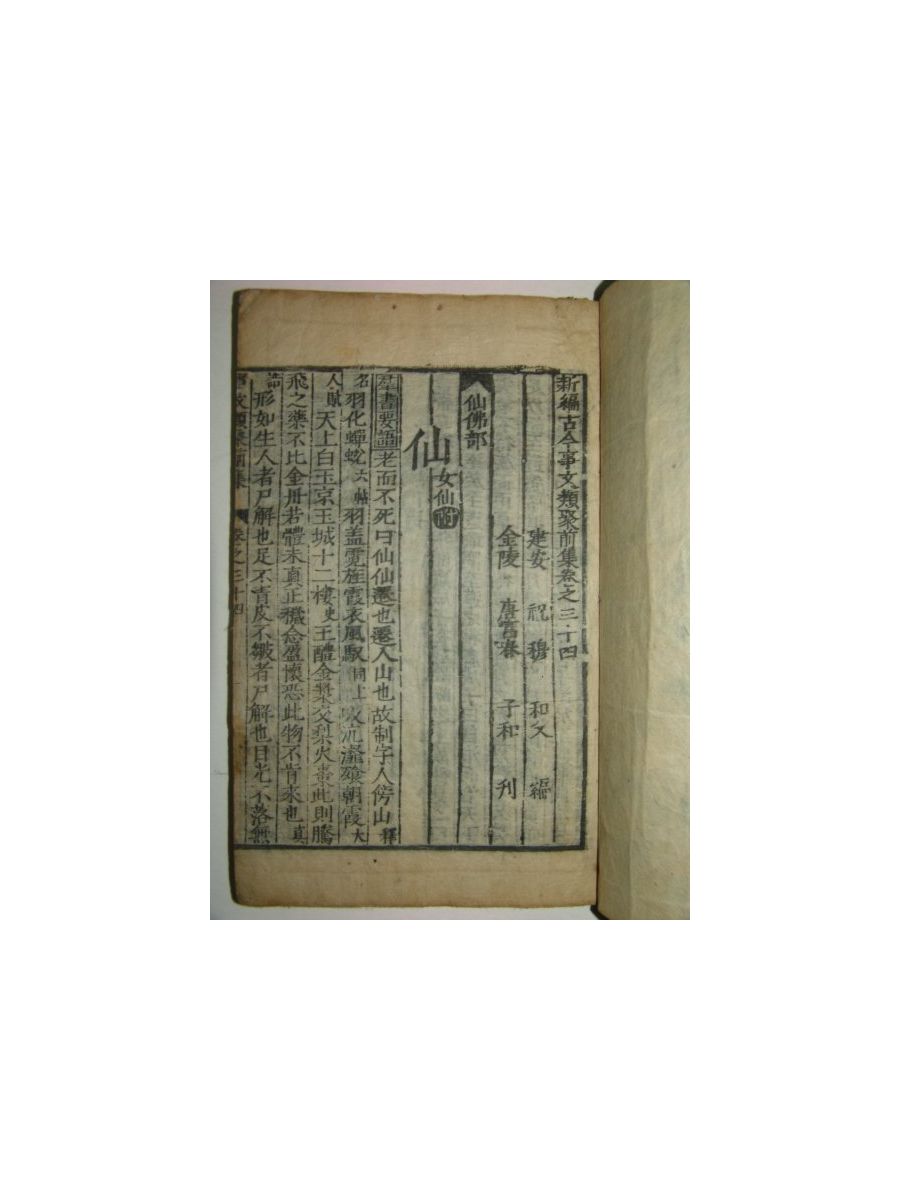 新編古今事文類聚前集卷之三十四
建安 祝穆 和父 編
金陵 唐富春 子和 刊
仙佛部
仙 女仙附
群書要語 老而不死曰仙仙遷也遷入山也故制字人傍山 釋
名 羽化蟬蛻 六帖 羽盖霓旌霞衣風馭 同上 吸沆瀣飡朝霞 大
人賦 天上白玉京玉城十二樓 史 玉醴金漿交梨火棗此則騰
飛之藥不比金丹若體未真正穢念盈懷恐此物不肯來也 真
誥 形如生人者尸解也足不青皮不皺者尸解也目光不落無
事文類聚前集 卷之三十四